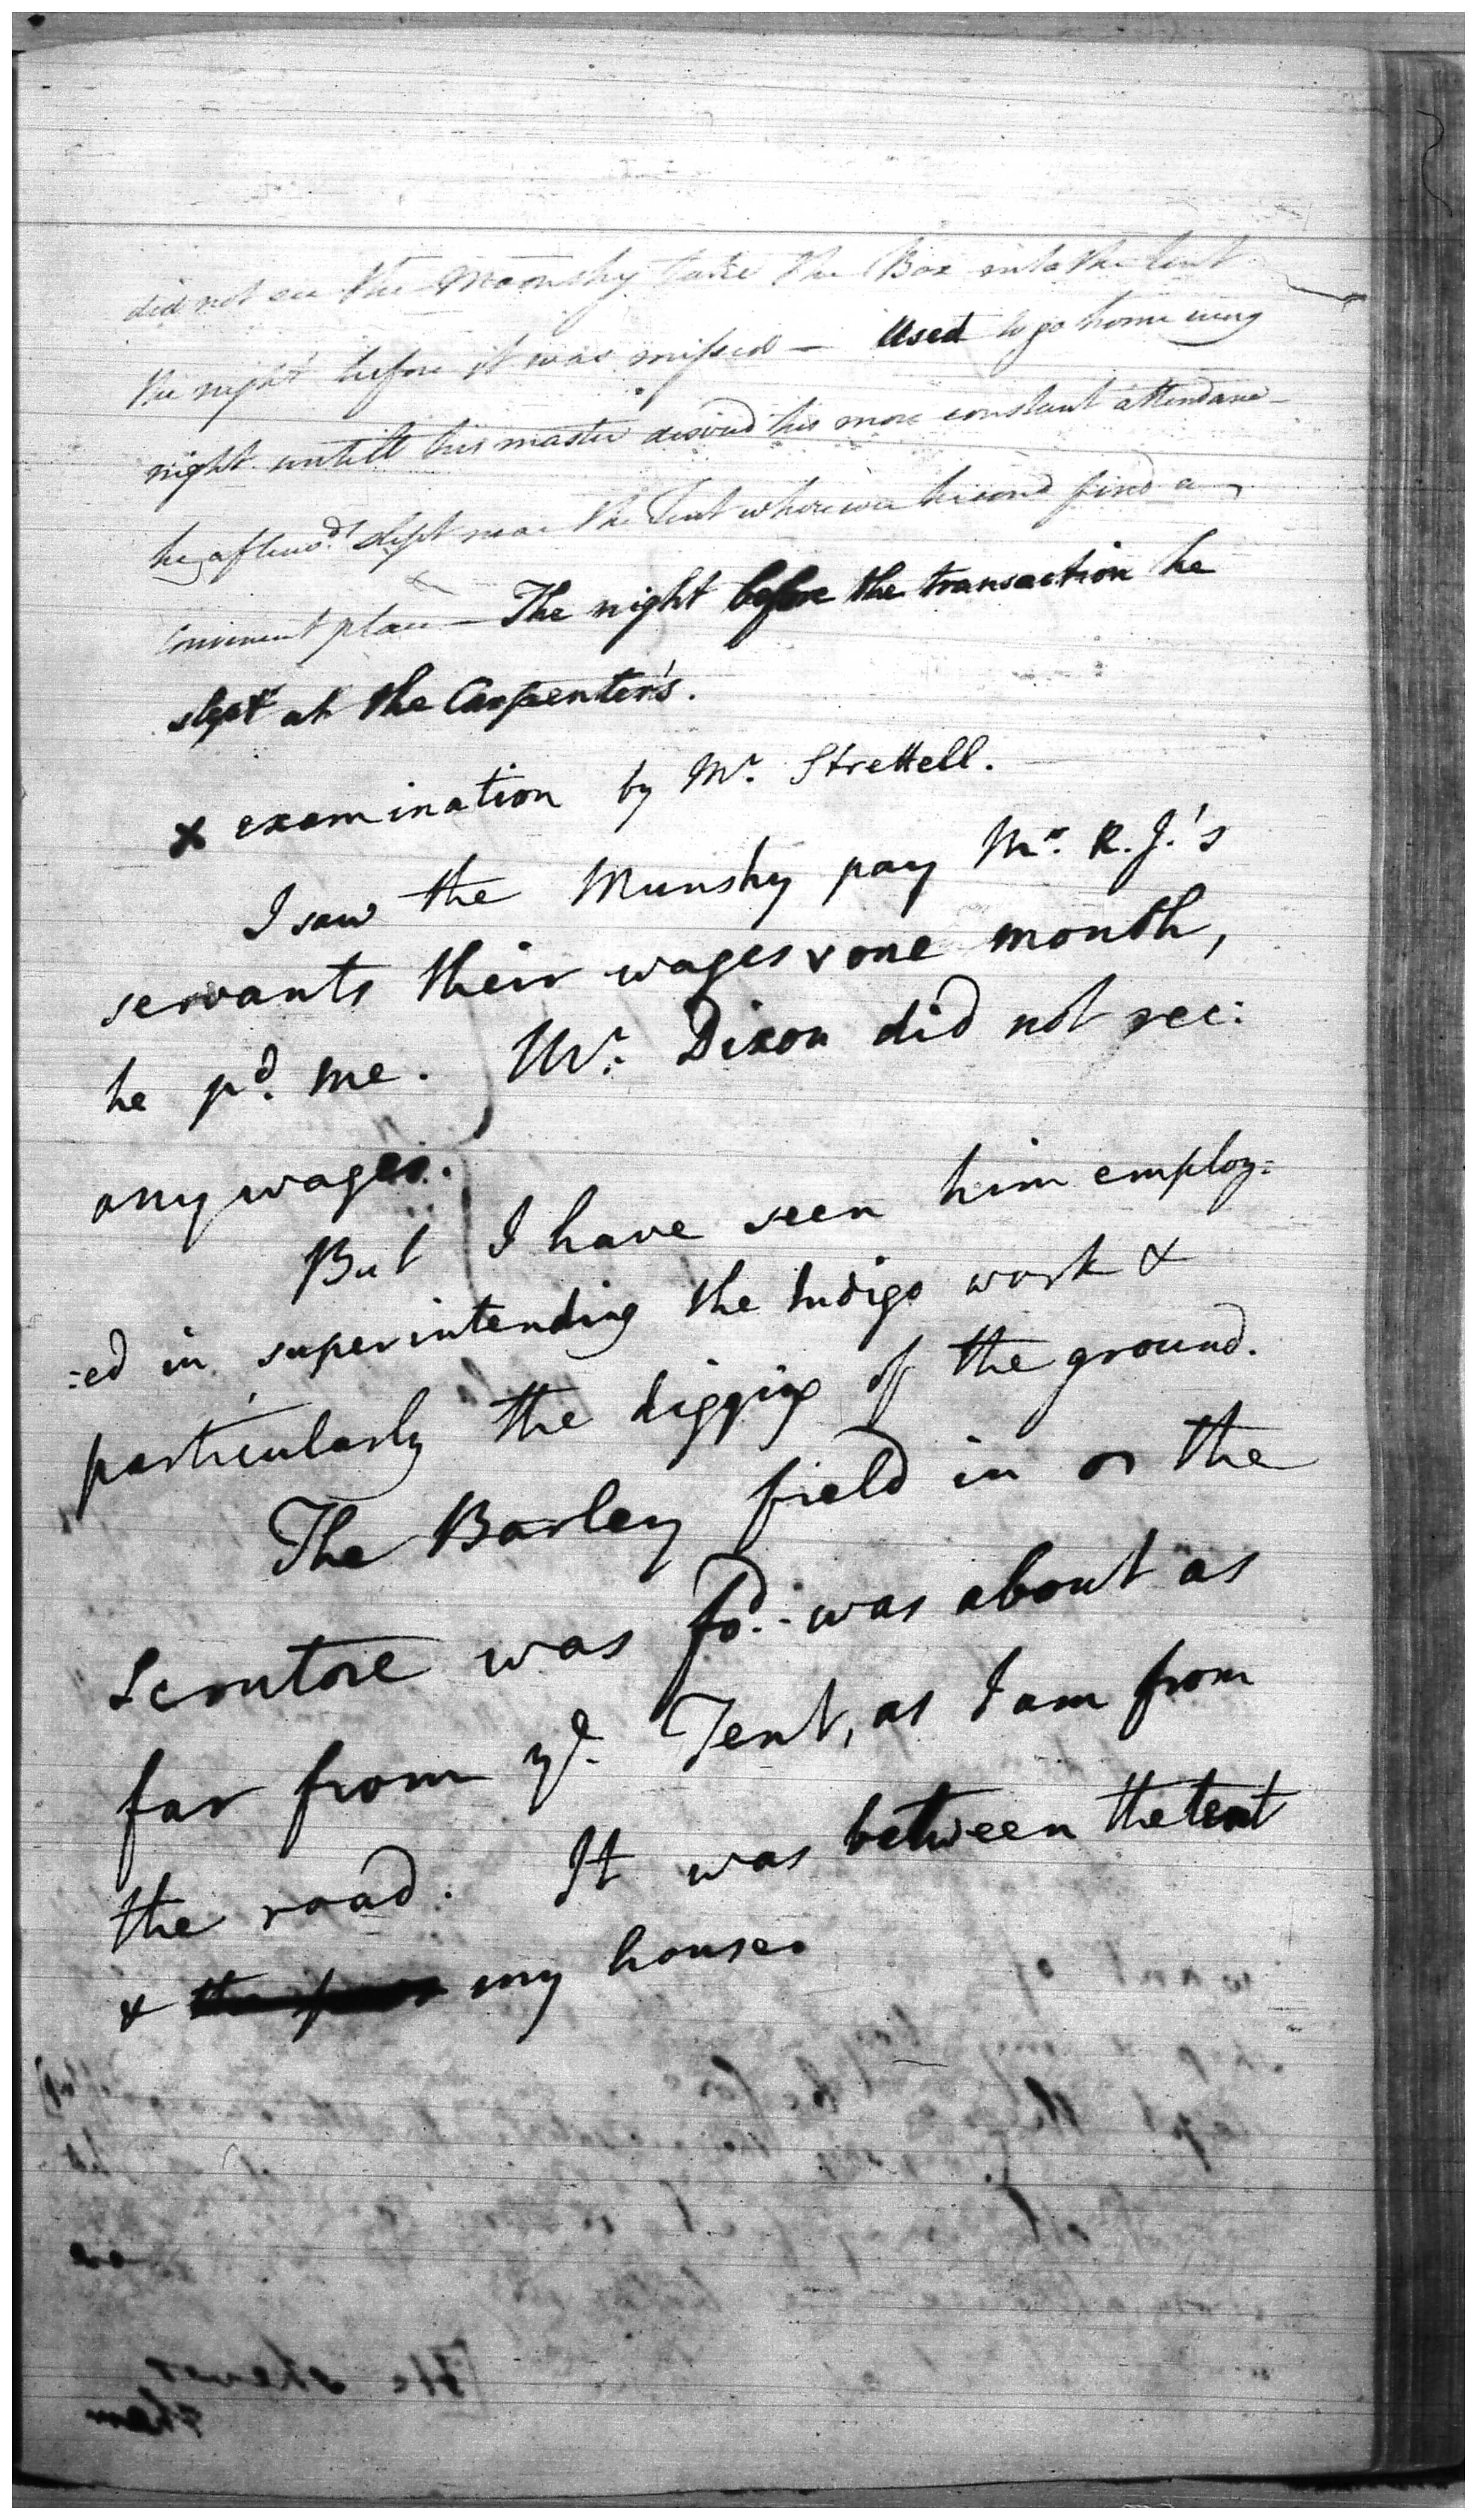 did not see the Moonshy take the Box into the tent
the night before it was missed — Used to go home every
night untill his master desired his more constant attendance —
he afterwds. slept near the Tent wherever he could find a
convenient place — The night before the transaction he
slept at the Carpenter's.
x examination by Mr. Strettell.
I saw the Munshy pay Mr. R. J.'s
servants their wages & one month,
he pd. me. Mr. Dixon did not rec:
any wages.
But I have seen him employ:
:ed in superintending the Indigo work &
particularly the digging of the ground.
The Barley field in or the
Scrutore was fd. was about as
far from ye. Tent, as I am from
the road. It was between the tent
& my house.